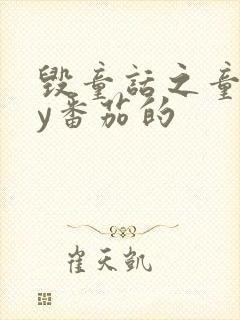 毁童话之童
y番茄的
崔天凯